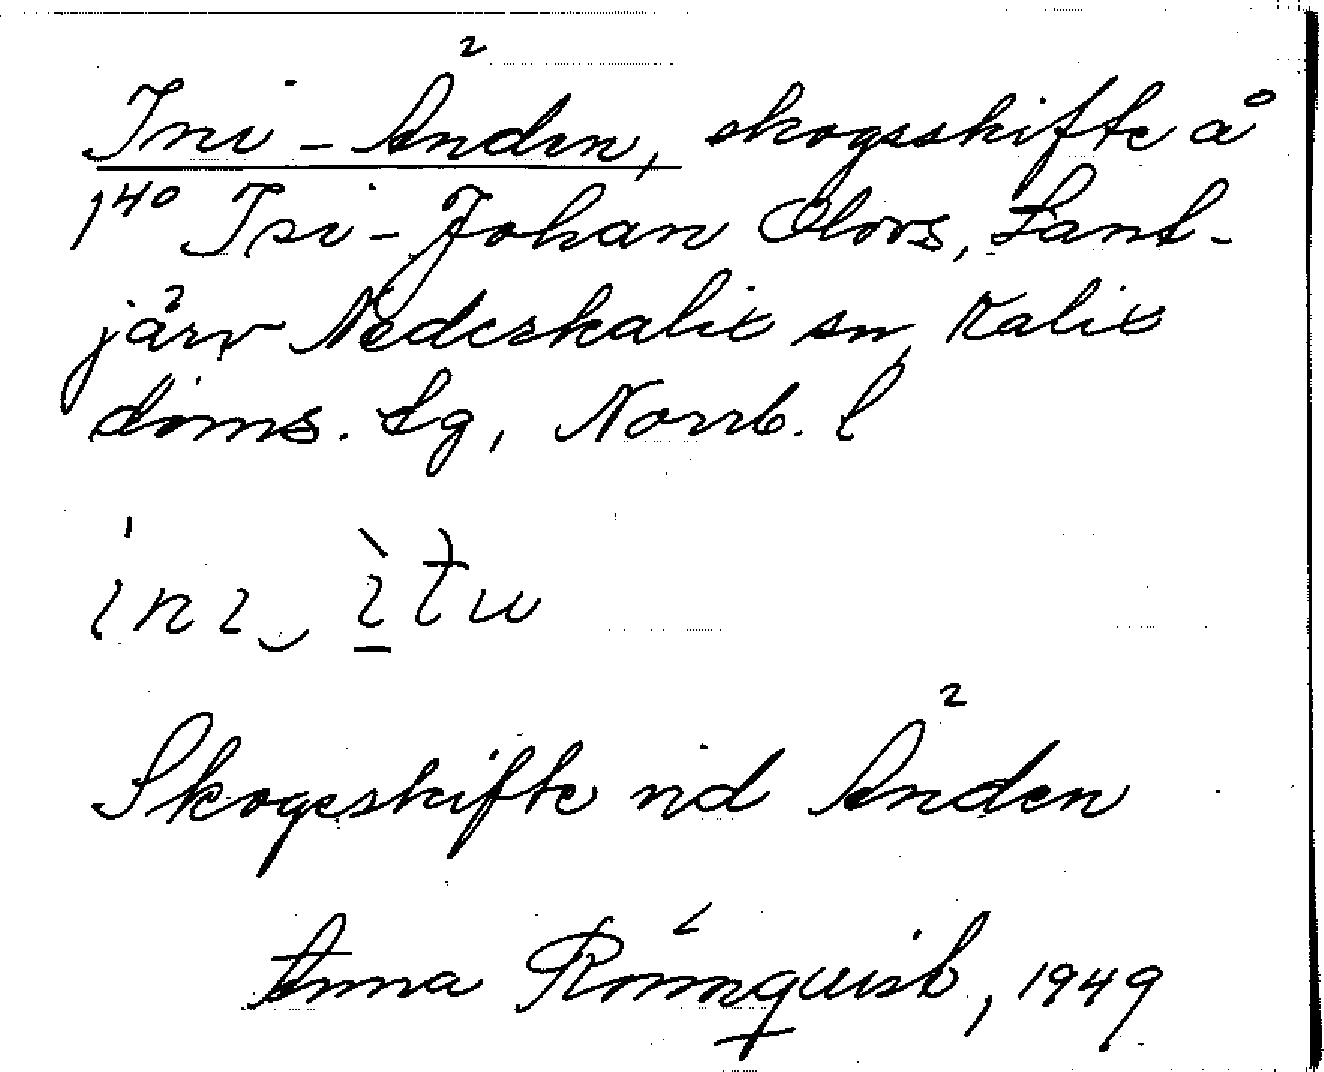 Ini-Änden, skogsskifte å
1⁴⁰ Isi-Johan Olovs, Lant-
järv Nederkalix sn, Kalix
doms. Lg, Norrb. l
Skogsskifte vid Änden
Anna Rönnquist, 1949